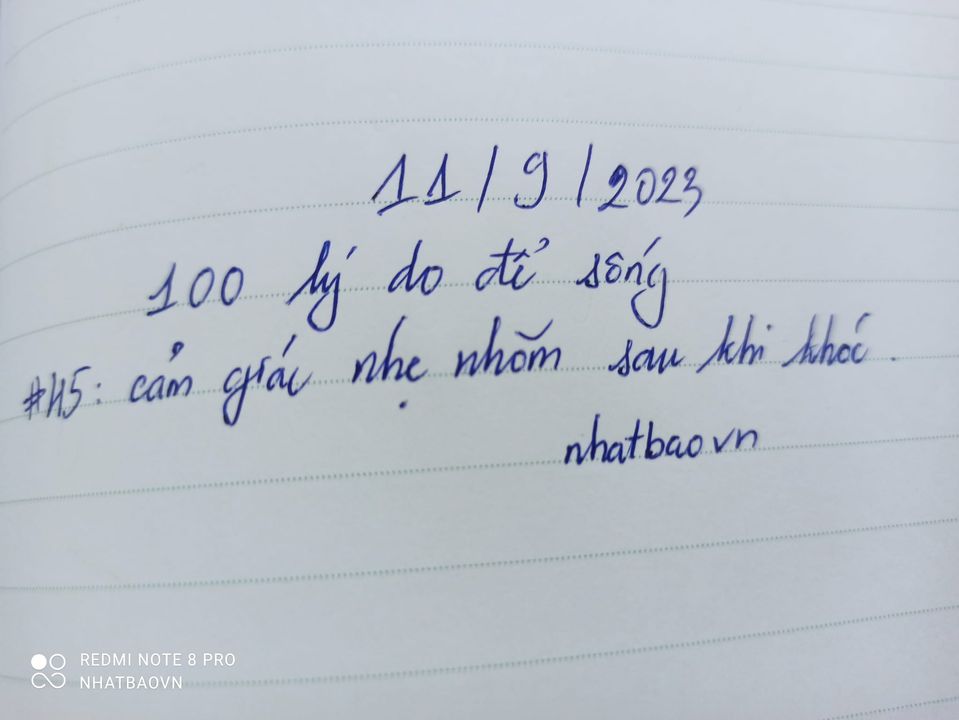 11/9/2023
100 lý do để sống
#45: cảm giác nhẹ nhõm sau khi khóc.
nhatbaovn
REDMI NOTE 8 PRO
NHATBAOVN